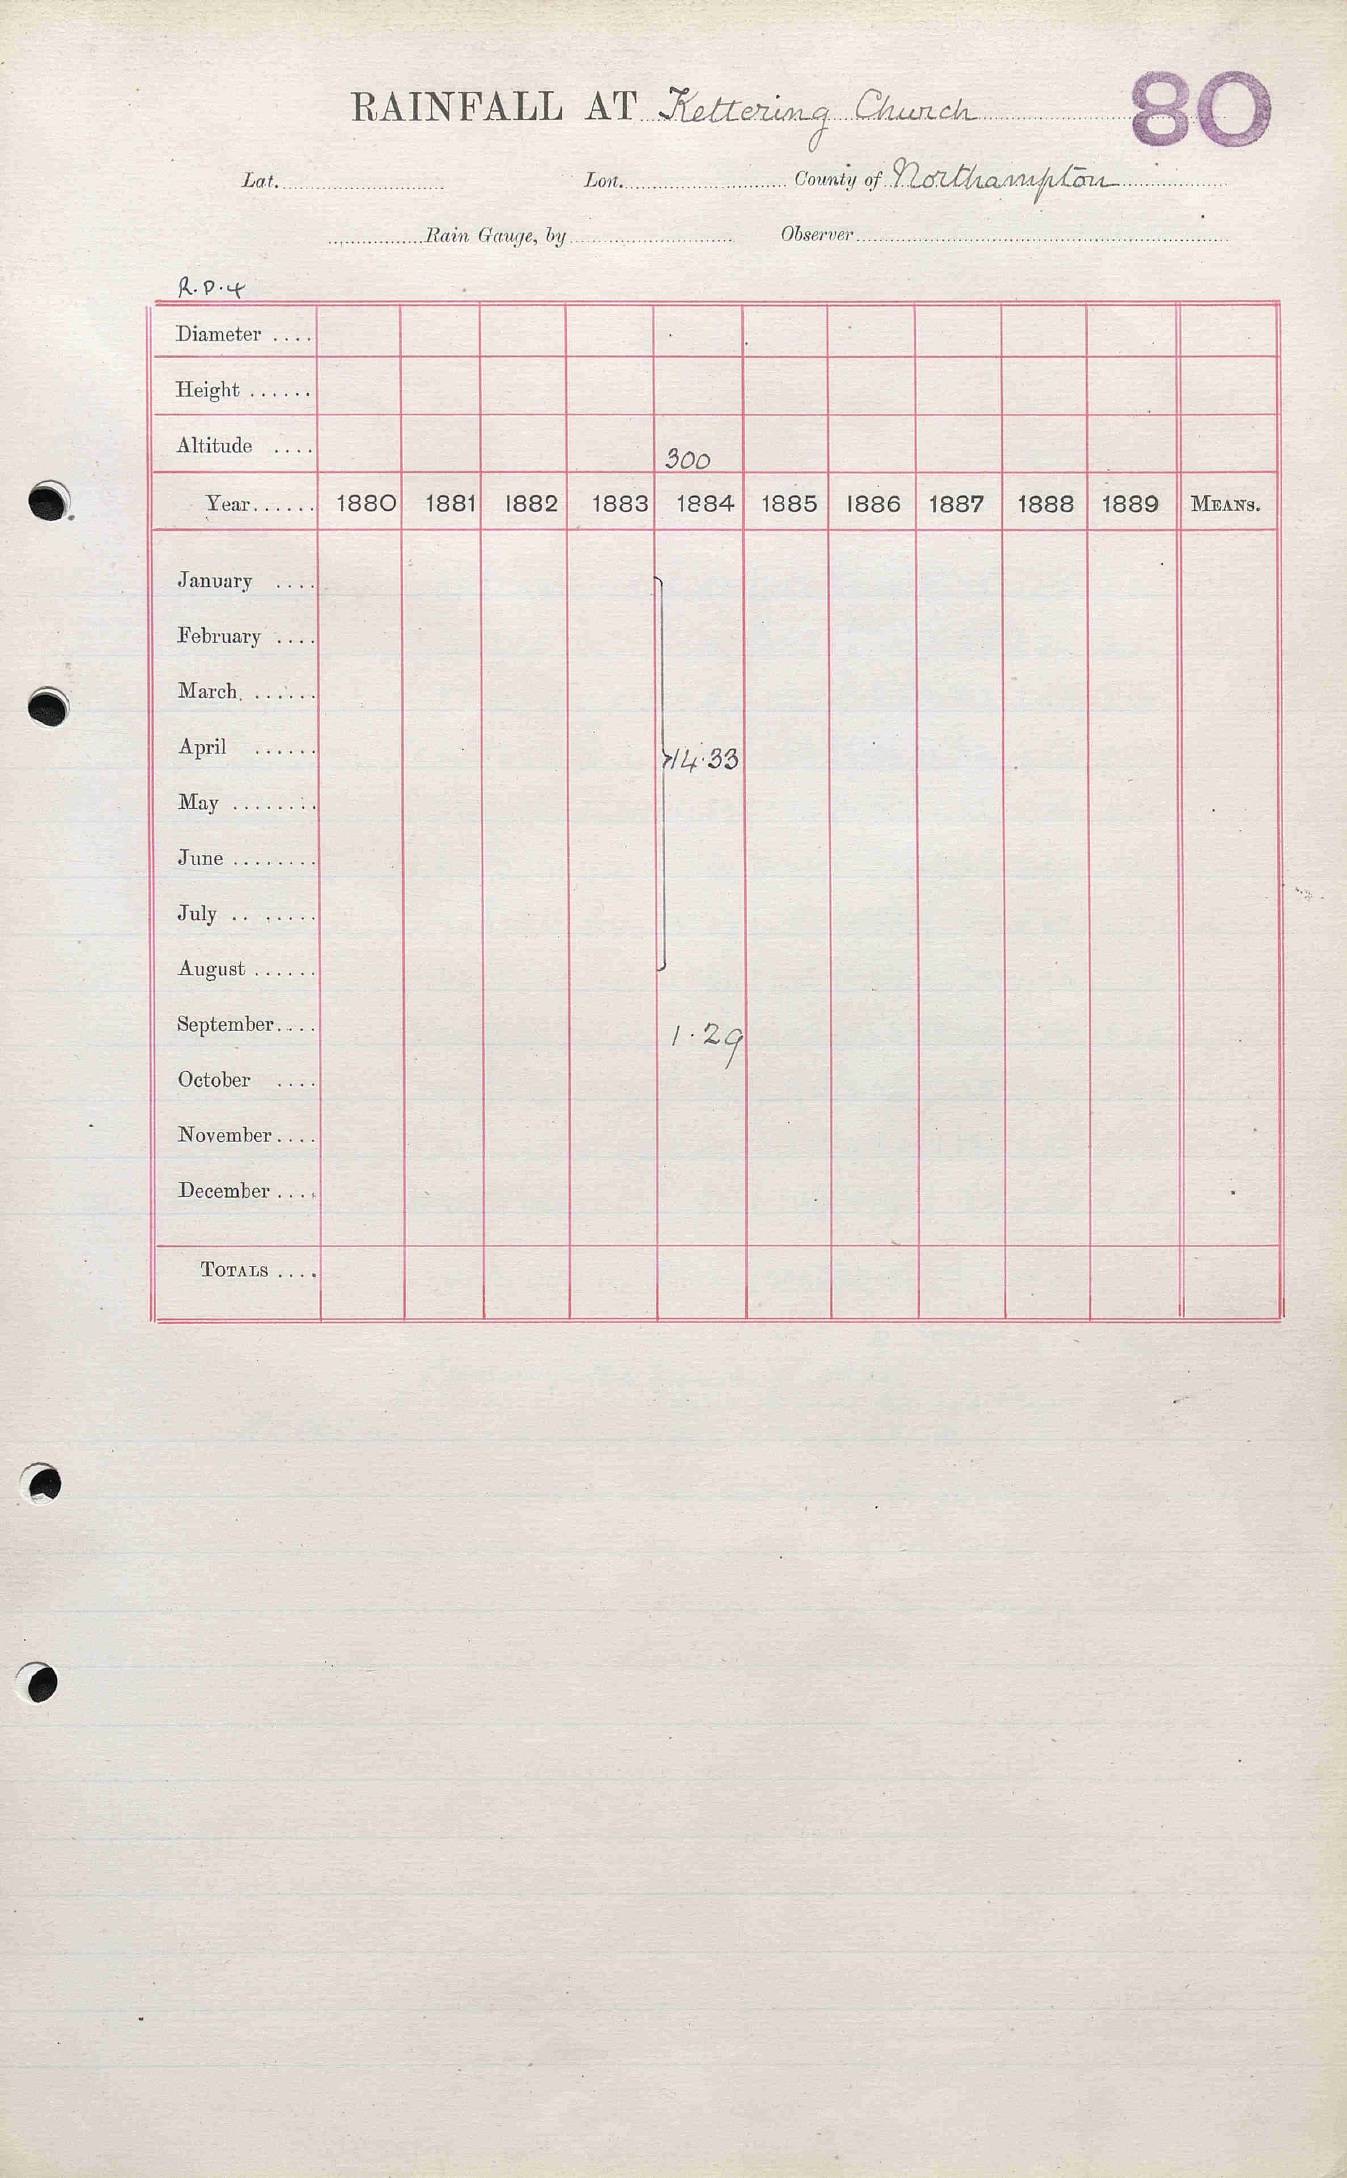 RAINFALL AT Kettering Church 80
Lat. Lon. County of Northampton
Rain Gauge, by Observer
R.D.4
Diameter ....
Height ......
Altitude .... 300
Year...... 1880 1881 1882 1883 1884 1885 1886 1887 1888 1889 MEANS.
January ....
February ....
March ......
April ...... 14.33
May ........
June ........
July .. .....
August ......
September.... 1.29
October ....
November....
December ....
TOTALS ....